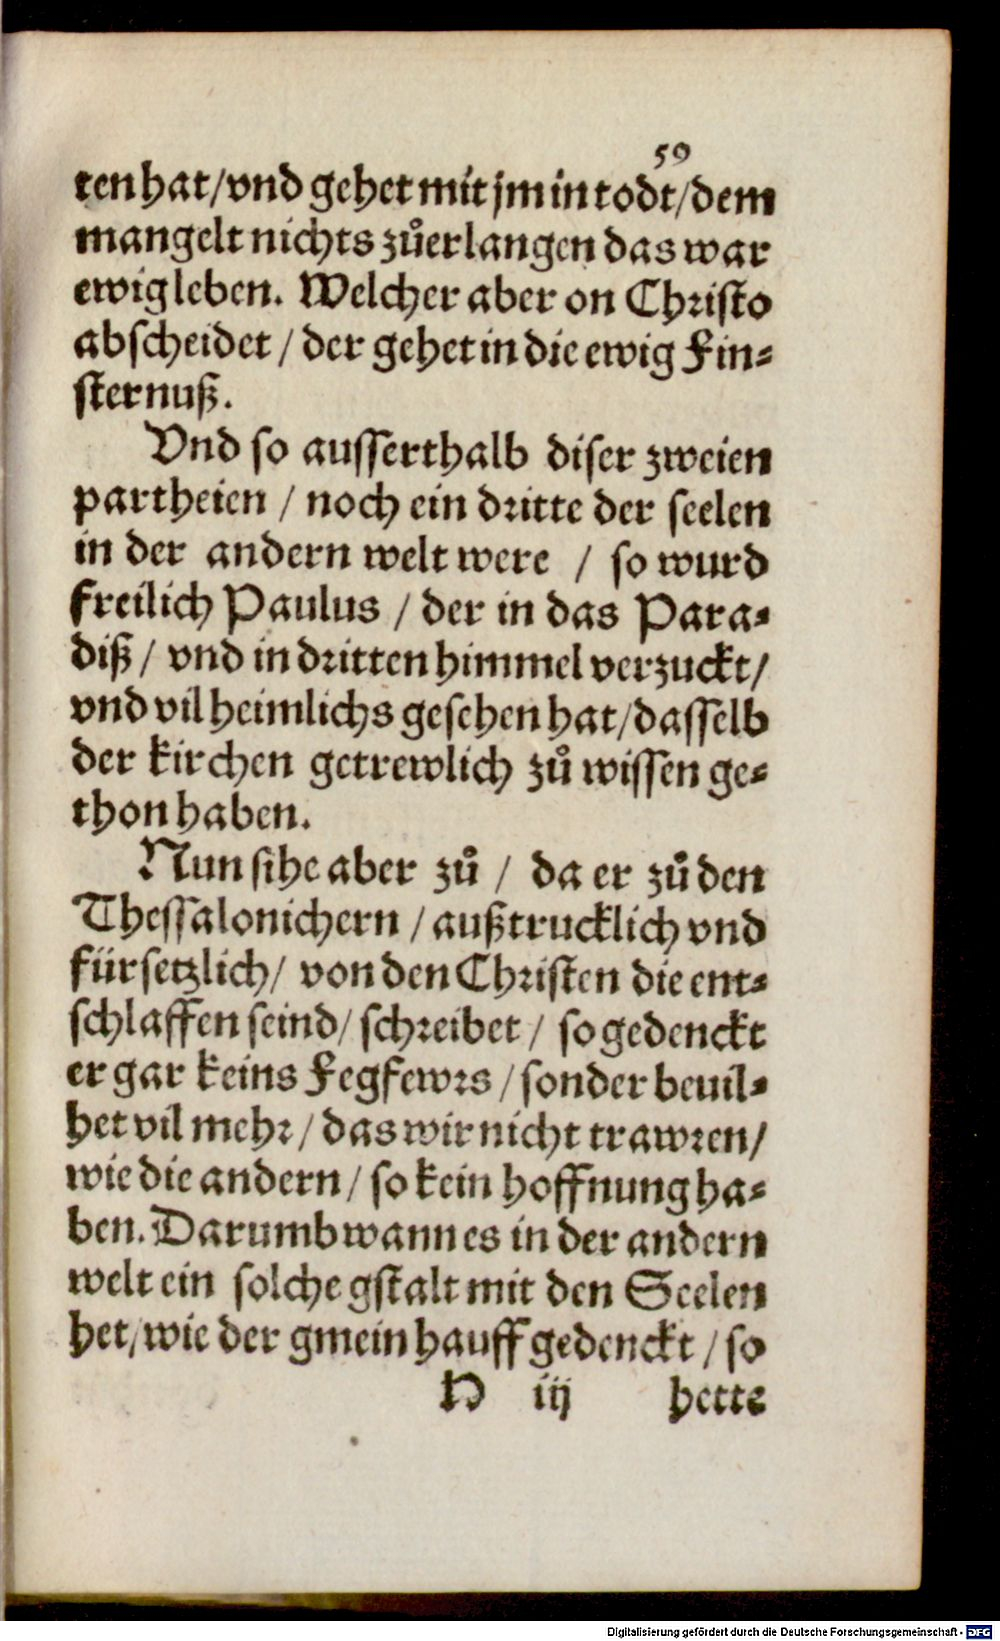 59
ten hat/vnd gehet mit jm in todt/dem
mangelt nichts zůerlangen das war
ewig leben. Welcher aber on Christo
abscheidet / der gehet in die ewig Fin⸗
sternuß.
Vnd so ausserthalb diser zweien
partheien / noch ein dritte der seelen
in der andern welt were / so wurd
freilich Paulus / der in das Para⸗
diß / vnd in dritten himmel verzuckt/
vnd vil heimlichs gesehen hat/dasselb
der kirchen getrewlich zů wissen ge⸗
thon haben.
Nun sihe aber zů / da er zů den
Thessalonichern / außtrucklich vnd
fürsetzlich/ von den Christen die ent⸗
schlaffen seind/ schreibet / so gedenckt
er gar keins Fegfewrs / sonder beuil⸗
het vil mehr / das wir nicht trawren/
wie die andern / so kein hoffnung ha⸗
ben. Darumb wann es in der andern
welt ein solche gstalt mit den Seelen
het/wie der gmein hauff gedenckt / so
H iij hette
Digitalisierung gefördert durch die Deutsche Forschungsgemeinschaft - DFG